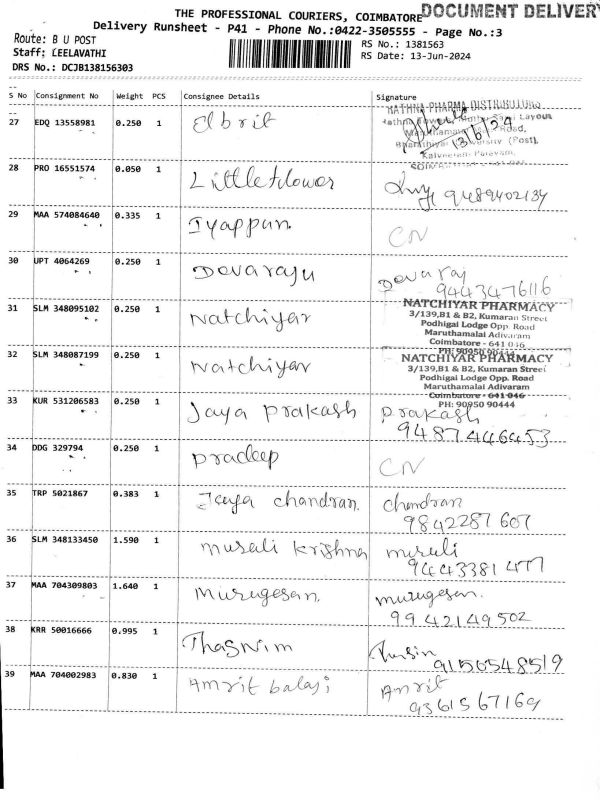 THE PROFESSIONAL COURIERS, COIMBATORE DOCUMENT DELIVERY
Delivery Runsheet - P41 - Phone No.:0422-3505555 - Page No.:3
Route: B U POST
RS No.: 1381563
Staff: LEELAVATHI
RS Date: 13-Jun-2024
DRS No.: DCJB138156303
S No Consignment No Weight PCS Consignee Details Signature
27 EDQ 13558981 0.250 1 Elbrit
RATHNA PHARMA DISTRIBUTORS
13/6/24
28 PRO 16551574 0.050 1 Littleflower
9489402134
29 MAA 574084640 0.335 1 Iyappan CN
30 UPT 4064269 0.250 1 Devaraju Devaraj
9443476116
31 SLM 348095102 0.250 1 Natchiyar
NATCHIYAR PHARMACY
3/139,B1 & B2, Kumaran Street
Podhigai Lodge Opp. Road
Maruthamalai Adivaram
Coimbatore - 641 046
PH: 90950 90444
32 SLM 348087199 0.250 1 Natchiyar
NATCHIYAR PHARMACY
3/139,B1 & B2, Kumaran Street
Podhigai Lodge Opp. Road
Maruthamalai Adivaram
Coimbatore - 641 046
PH: 90950 90444
33 KUR 531206583 0.250 1 Jaya Prakash Prakash
9487446453
34 DDG 329794 0.250 1 Pradeep CN
35 TRP 5021867 0.383 1 Jaya chandran. chandran
9842287607
36 SLM 348133450 1.590 1 murali krishna murali
9443381477
37 MAA 704309803 1.640 1 Murugesan. murugesan.
9942149502
38 KRR 50016666 0.995 1 Thasnim
9156548519
39 MAA 704002983 0.830 1 Amrit balaji Amrit
9361567169